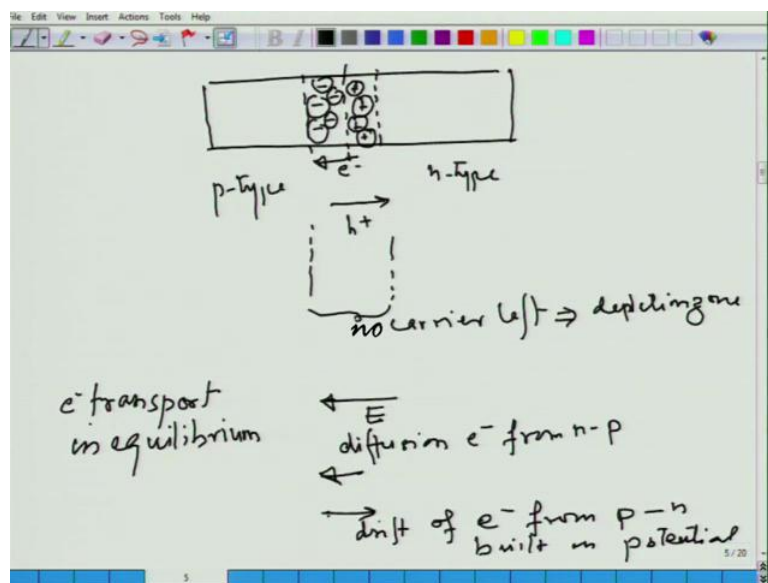 File Edit View Insert Actions Tools Help
B I
e-
p-type n-type
h+
no carrier left ⇒ depletion zone
e- transport
in equilibrium
E
diffusion e- from n-p
drift of e- from p-n
built in potential
5/20
5